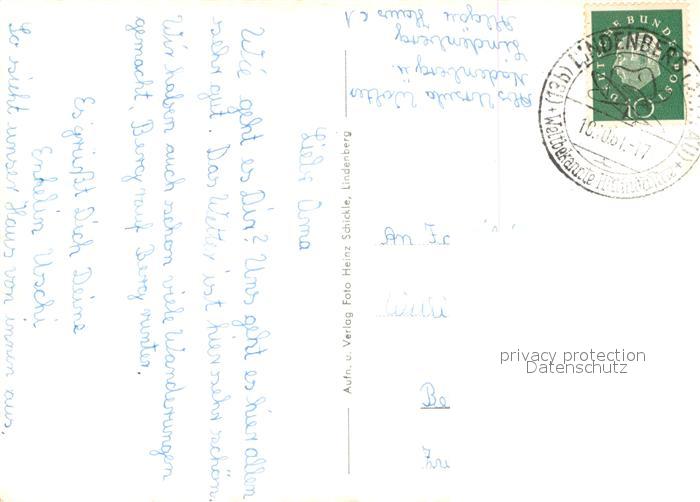 Liebe Oma
Wie geht es Dir? Uns geht es hier allen
sehr gut. Das Wetter ist hier sehr schön.
Wir haben auch schon viele Wanderungen
gemacht. Berg rauf Berg runter.
Es grüßt Dich Deine
Enkelin Uschi
So sieht unser Haus von innen aus.
Aufn. u. Verlag Foto Heinz Schickle, Lindenberg
Abs Ursula Wolter
Nadenberg ü.
Lindenberg
Allgäu Haus
DEUTSCHE BUNDESPOST
10
(13b) LINDENBERG (ALLGÄU)
-17
Weltbekannte
An Fr
Be
privacy protection
Datenschutz